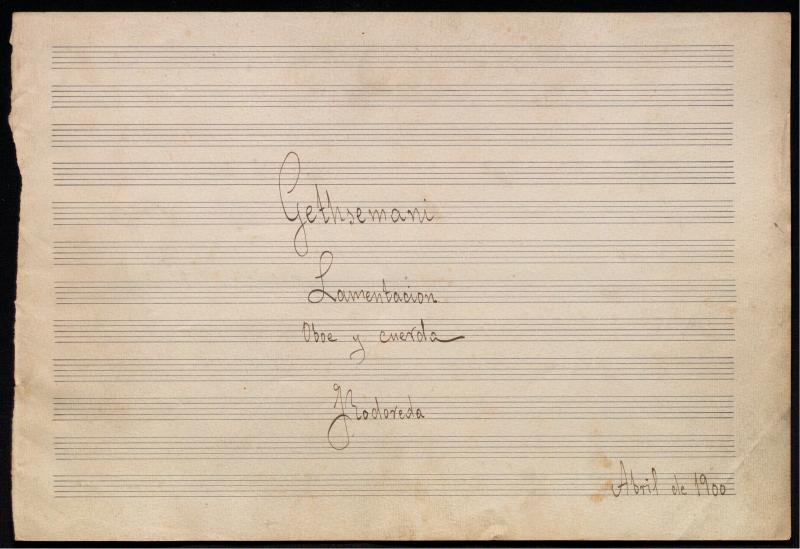 Gethsemani
Lamentacion
Oboe y cuerda
J Rodoreda
Abril de 1900